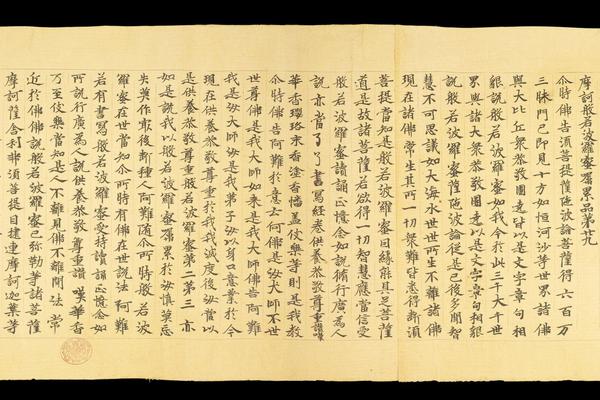 摩訶般若波羅蜜囑累品第廿九
尒時佛告須菩提薩陁波論菩薩得六百万
三昧門已即見十方如恒河沙等世界諸佛
與大比丘眾恭敬圍遶皆以是文字章句相
貌說般若波羅蜜如我今於此三千大千世
界與諸大眾恭敬圍遶以是文字章句相貌
說般若波羅蜜薩陁波論從是已後多聞智
慧不可思議如大海水世世所生不離諸佛
現在諸佛常生其所一切眾難皆悉得斷須
菩提當知是般若波羅蜜因緣能具足菩薩
道是故諸菩薩若欲得一切智慧應當信受
般若波羅蜜讀誦正憶念如說脩行廣為人
說亦當了了書寫經卷供養恭敬尊重讚嘆
華香瓔珞末香塗香幡蓋伎樂等則是我教
尒時佛告阿難於意云何佛是汝大師不世
世尊佛是我大師如來是我大師佛告阿難
我是汝大師汝是我弟子汝以身口意業於今
現在供養恭敬尊重於我我滅度後汝當以
是供養恭敬尊重般若波羅蜜第二第三亦
如是說我以般若波羅蜜囑累於汝慎莫忘
失莫作最後斷種人阿難隨尒所時般若波
羅蜜在世當知尒所時有佛在世說法阿難
若有書寫般若波羅蜜受持讀誦正憶念如
所說行廣為人說恭敬尊重讚嘆華香
乃至伎樂當知是人不離見佛不離聞法常
近於佛佛說般若波羅蜜已弥勒等諸菩薩
摩訶薩舍利弗須菩提目揵連摩訶迦葉等